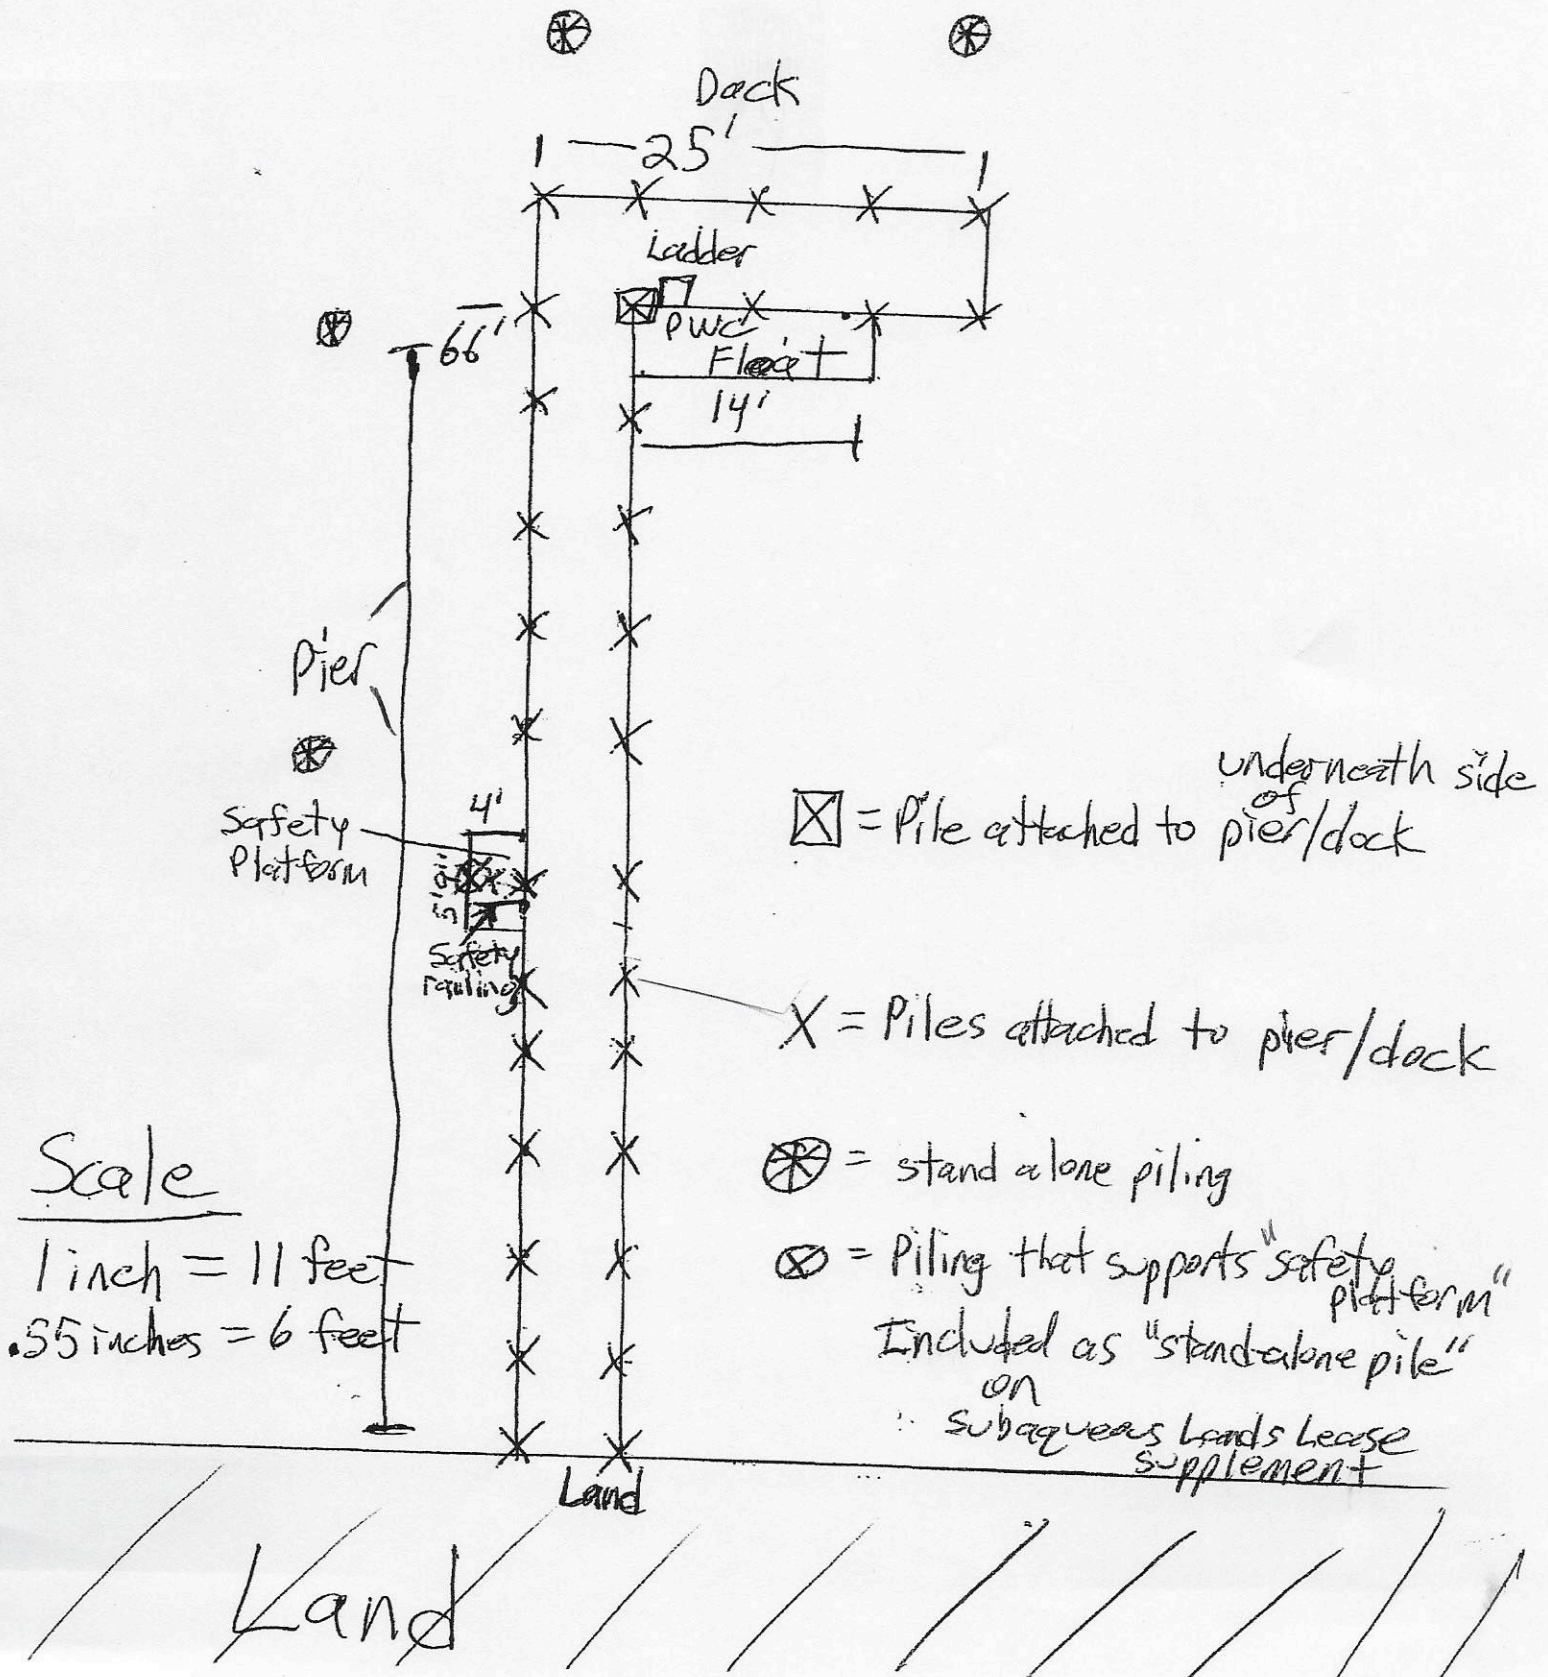 Dock
25'
Ladder
PWC
Float
66'
14'
Pier
4'
Safety
Platform
Safety
railing
underneath side
of
= Pile attached to pier/dock
X = Piles attached to pier/dock
= stand alone piling
= Piling that supports "safety
platform"
Included as "stand-alone pile"
on
subaqueous Lands Lease
supplement
Scale
1 inch = 11 feet
.55 inches = 6 feet
Land
Land